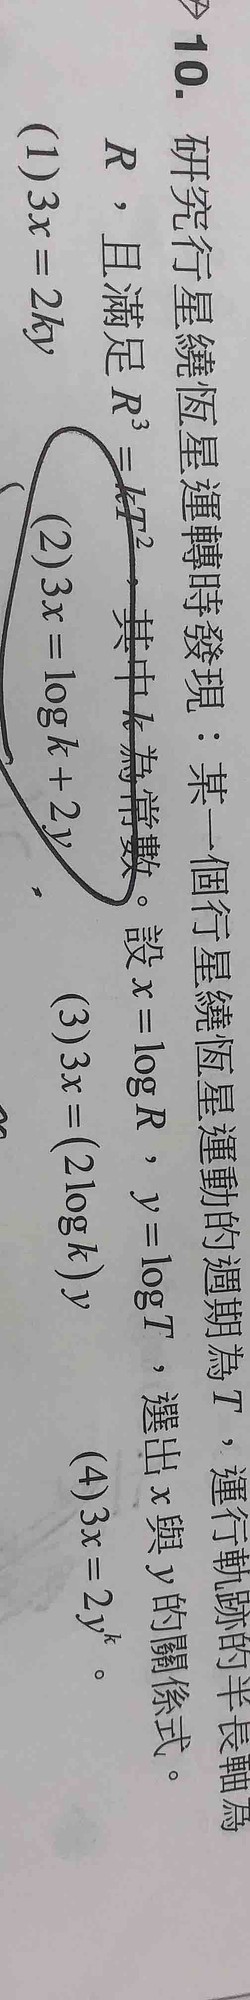 10. 研究行星繞恆星運轉時發現：某一個行星繞恆星運動的週期為T，運行軌跡的半長軸為
R，且滿足R³=kT²，其中k為常數。設x=logR，y=logT，選出x與y的關係式。
(1)3x=2ky (2)3x=logk+2y (3)3x=(2logk)y (4)3x=2yᵏ。